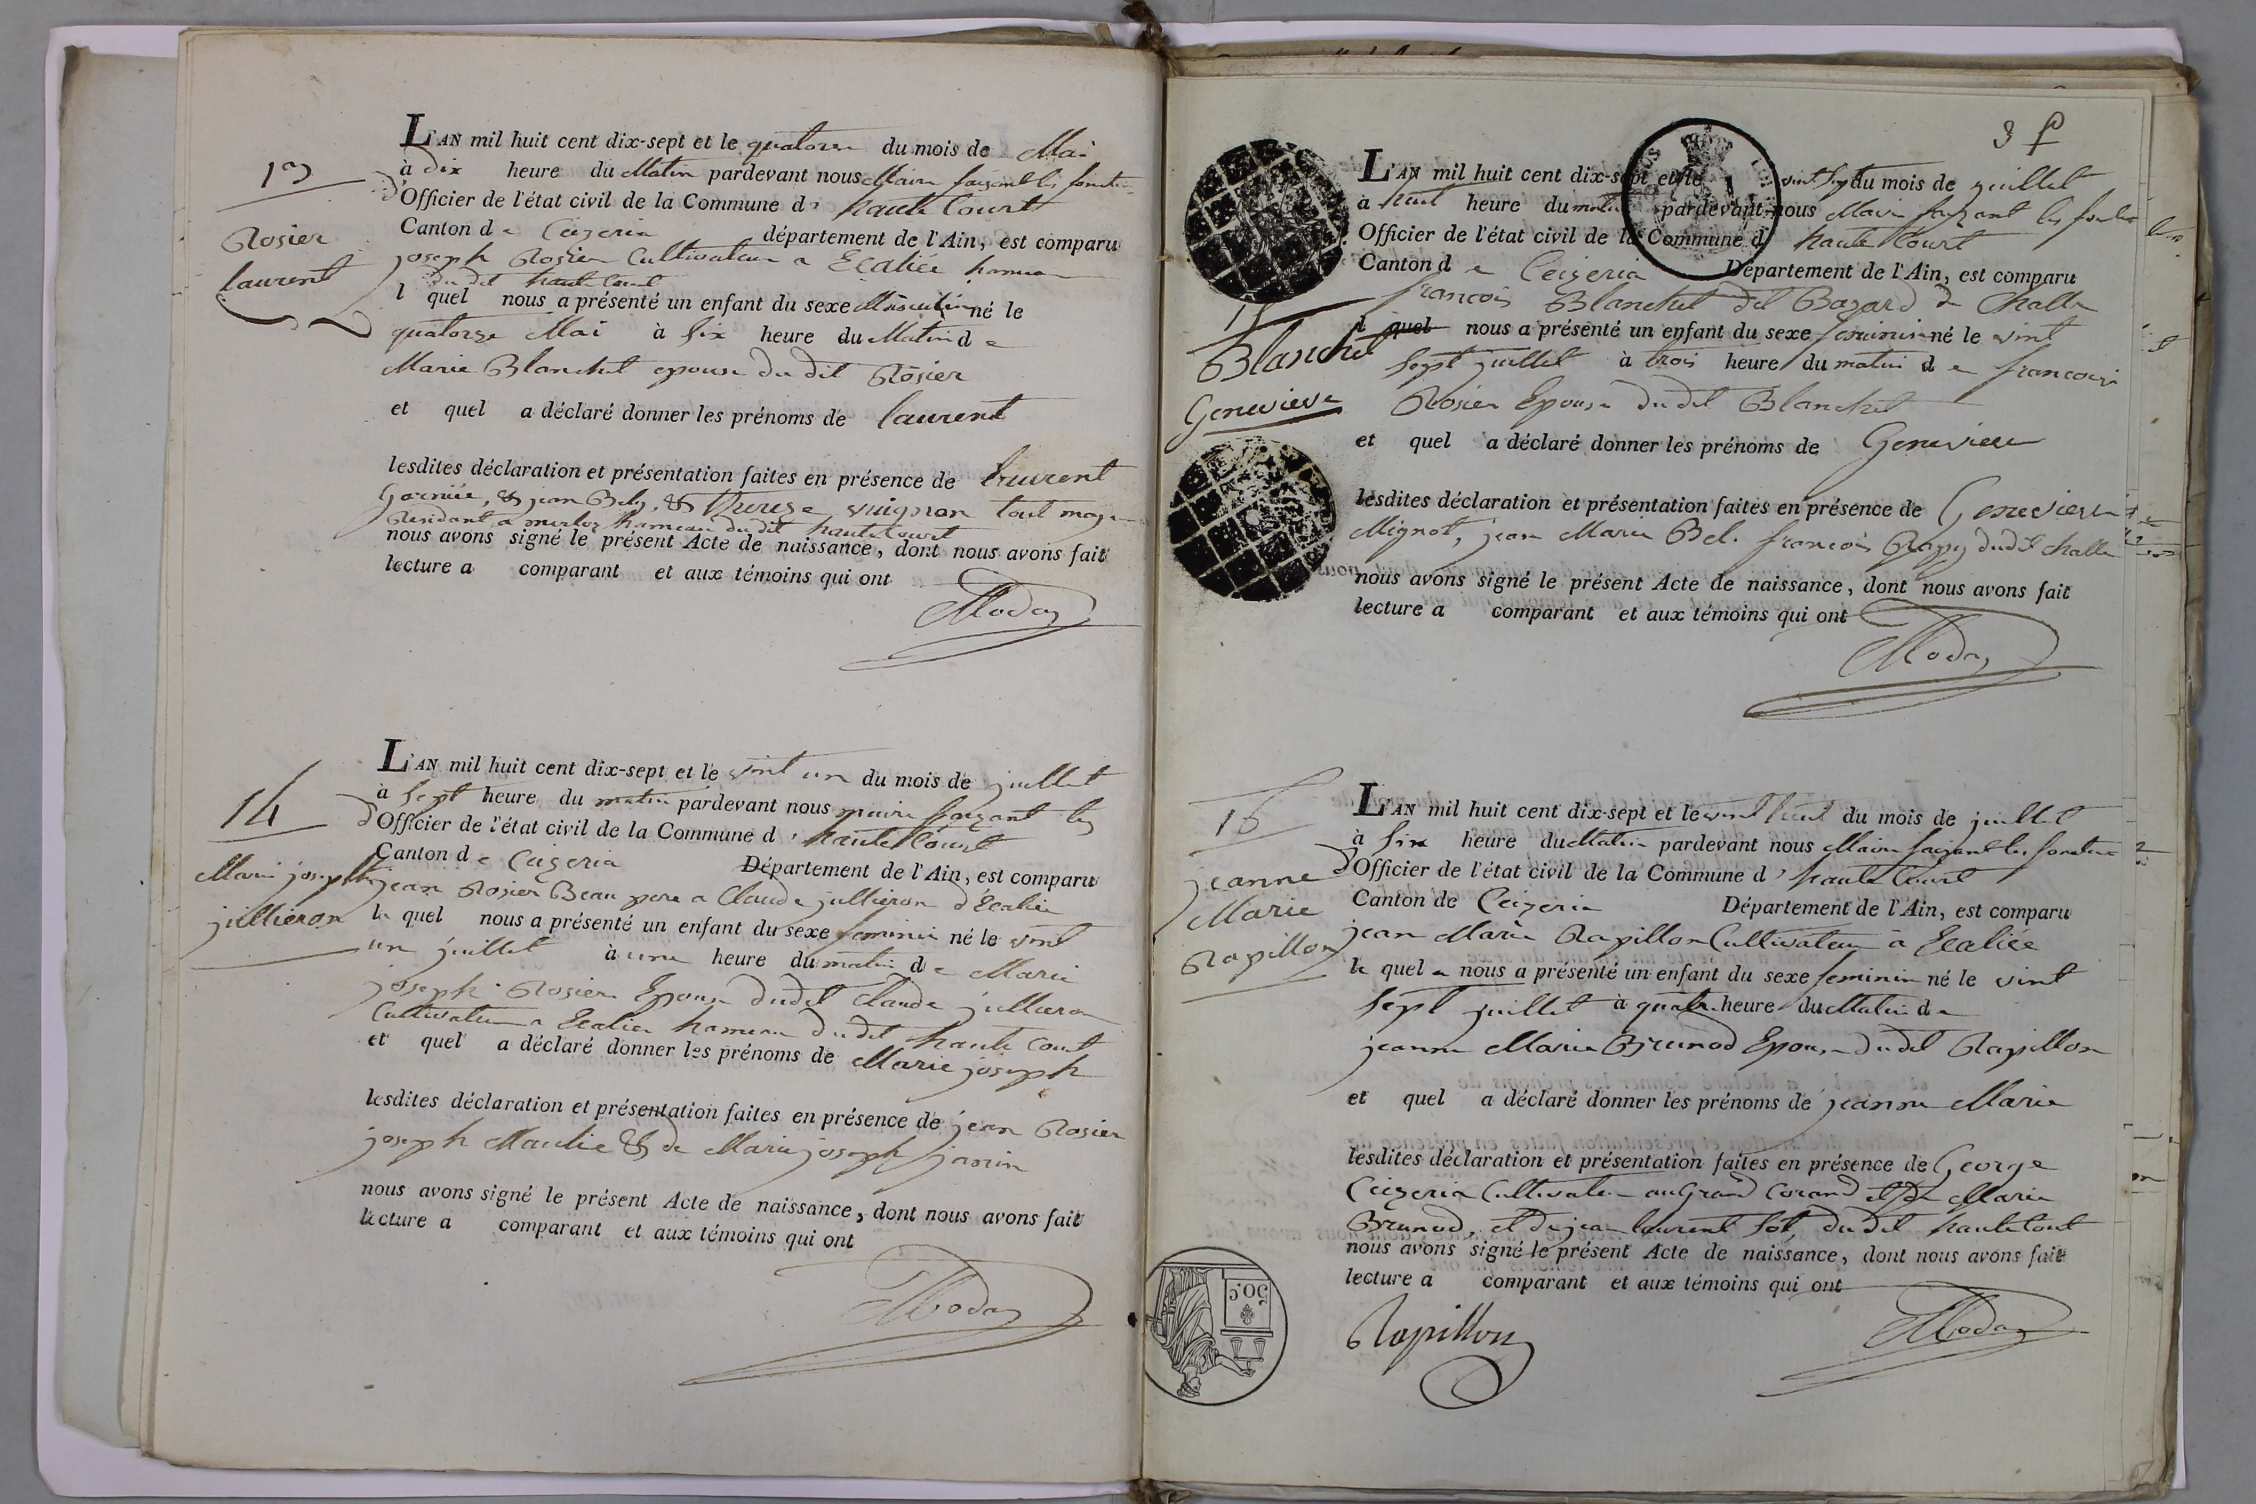 13
Rosier
laurent
L'AN mil huit cent dix-sept et le quatorze du mois de Mai
à dix heure du Matin pardevant nous Maire faizant les fonction
d'Officier de l'état civil de la Commune d' haute Court
Canton de Ceizeria département de l'Ain, est comparu
joseph Rosier Cultivateur a Ecaliée hameau
du dit haute Court
l quel nous a présenté un enfant du sexe Masculin né le
quatorze Mai à six heure du Matin de
Marie Blanchet epouse du dit Rosier
et quel a déclaré donner les prénoms de laurent
lesdites déclaration et présentation faites en présence de laurent
& jean Bely, & Thereze vuignon tout
Residant a hameau du dit haute Court
nous avons signé le présent Acte de naissance, dont nous avons fait
lecture a comparant et aux témoins qui ont
Moday
14
Marie joseph
jullieron
L'AN mil huit cent dix-sept et le vint un du mois de juillet
à sept heure du matin pardevant nous maire faizant les
d'Officier de l'état civil de la Commune d' haute Court
Canton de Ceizeria Département de l'Ain, est comparu
jean Rosier Beau pere a Claude jullieron d'Ecalier
le quel nous a présenté un enfant du sexe feminin né le vint
un juillet à une heure du matin de Marie
joseph Rosier Epouse dudit Claude jullieron
Cultivateur a Ecalier hameau du dit haute Court
et quel a déclaré donner les prénoms de Marie joseph
lesdites déclaration et présentation faites en présence de jean Rosier
joseph Maulie & de Marie joseph janin
nous avons signé le présent Acte de naissance, dont nous avons fait
lecture a comparant et aux témoins qui ont
Moday
3
15
Blanchet
Genevieve
L'AN mil huit cent dix-sept et le vint sept du mois de juillet
à huit heure du matin pardevant nous Maire faizant les fonction
Officier de l'état civil de la Commune d haute Court
Canton de Ceizeria Département de l'Ain, est comparu
francois Blanchet dit Bazard de Challe
l quel nous a présenté un enfant du sexe feminin né le vint
sept juillet à trois heure du matin de francoise
Rosier Epouse du dit Blanchet
et quel a déclaré donner les prénoms de Genevieve
lesdites déclaration et présentation faites en présence de Genevieve
Mignot, jean Marie Bel. francois Rapy dudit challe
nous avons signé le présent Acte de naissance, dont nous avons fait
lecture a comparant et aux témoins qui ont
Moday
16
jeanne
Marie
Rapillon
L'AN mil huit cent dix-sept et le vint huit du mois de juillet
à six heure du Matin pardevant nous Maire faizant les fonction
d'Officier de l'état civil de la Commune d' haute Court
Canton de Ceizeria Département de l'Ain, est comparu
jean Marie Rapillon Cultivateur a Ecaliée
le quel a nous a présenté un enfant du sexe feminin né le vint
sept juillet à quatre heure du Matin de
jeanne Marie Brunod Epouse du dit Rapillon
et quel a déclaré donner les prénoms de jeanne Marie
lesdites déclaration et présentation faites en présence de George
Ceizeria Cultivateur au Grand Corand et de Marie
Brunod, et de jean laurent Sot, du dit haute Court
nous avons signé le présent Acte de naissance, dont nous avons fait
lecture a comparant et aux témoins qui ont
Rapillon
Moday
50.c